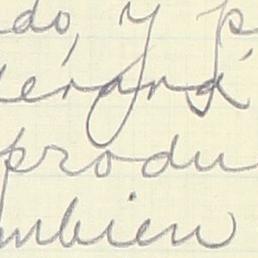 do, y p
erará
produ
mbien